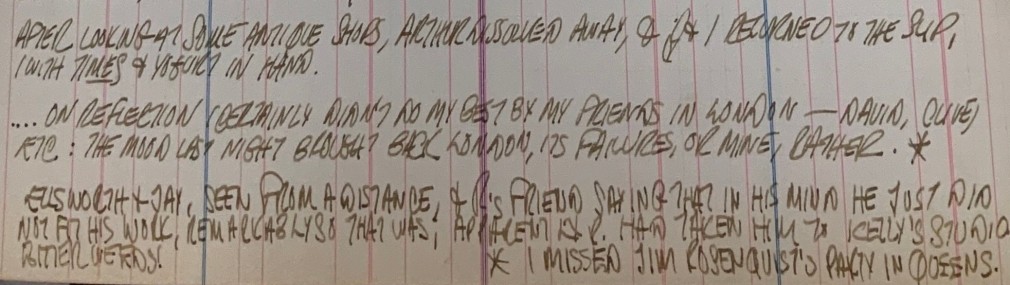 AFTER LOOKING AT SOME ANTIQUE SHOPS, ARTHUR DISSOLVED AWAY, & & I RETURNED TO THE SLIP,
WITH TIMES & YOGURT IN HAND.
.... ON REFLECTION I CERTAINLY DIDN'T DO MY BEST BY MY FRIENDS IN LONDON — DAVID, OLIVE,
ETC: THE MOOD LAST NIGHT BROUGHT BACK LONDON, ITS FAILURES, OR MINE, RATHER. *
ELLSWORTH & JAY, SEEN FROM A DISTANCE, & FRIEND SAYING THAT IN HIS MIND HE JUST DID
NOT HIS WORK, REMARKABLY SO THAT WAS, HAD TAKEN HIM TO KELLY'S STUDIO
* I MISSED JIM ROSENQUIST'S PARTY IN QUEENS.